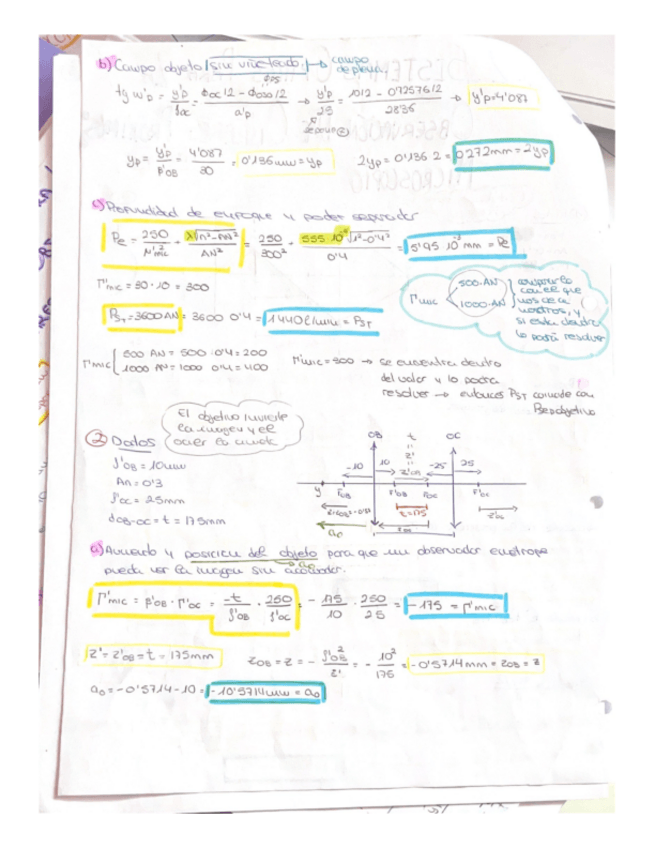 b) Campo objeto sin viñeteado. → campo de plena
tg w'p = y'p / f'oc = (φoc/2 - φ / 2) / a'p → y'p / 25 = (10/2 - 0'7257612) / 2835 → y'p = 4'087
yp = y'p / β'OB = 4'087 / 30 = 0'136 mm = yp 2yp = 0'136 · 2 = 0'272 mm = 2yp
c) Profundidad de enfoque y poder separador
Pe = 250 / Γ'²mic + λ√(n²-AN²) / AN² = 250 / 300² + 555 · 10⁻⁶ √(1²-0'4²) / 0'4 = 5'95 · 10⁻³ mm = Pe
Γ'mic = 30 · 10 = 300
PST = 3600 AN = 3600 · 0'4 = 1440 l/mm = PST
Γ'mic 500·AN 1000·AN comparar lo con el que nos da a nosotros, y si esta dentro lo podrá resolver
Γ'mic { 500 AN = 500 · 0'4 = 200
1000 AN = 1000 · 0'4 = 400
Γ'mic = 300 → se encuentra dentro
del valor y lo podra
resolver → entonces PST coincide con
PSE objetivo
El objetivo invierte
la imagen y el
ocular la
② Datos
f'OB = 10mm
An = 0'3
f'OC = 25mm
dOB-OC = t = 175mm
OB t OC
z'
-10 10 z'OB -25 25
y FOB F'OB FOC F'OC
t=175 z'OC
ao
a) Aumento y posicion del objeto para que un observador emetrope
pueda ver la imagen sin acomodar.
Γ'mic = β'OB · Γ'OC = -t / f'OB · 250 / f'OC = - 175 / 10 · 250 / 25 = -175 = Γ'mic
z' = z'OB = t = 175mm zOB = z = - f'OB² / z' = - 10² / 175 = -0'5714 mm = zOB = z
ao = -0'5714 - 10 = -10'5714 mm = ao